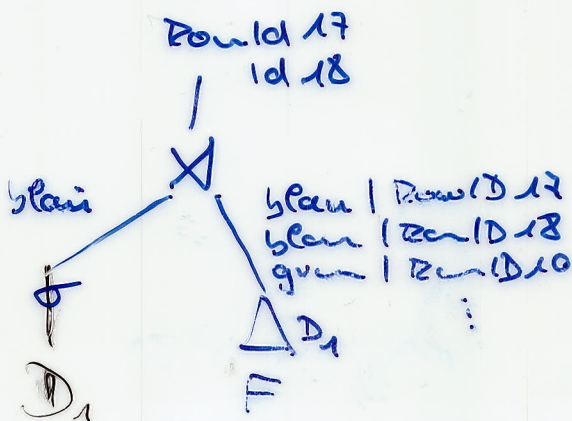 RowId 17
Id 18
blau
blau | RowID 17
blau | RowID 18
grün | RowID 10
⋮
σ
D₁
D₁
F